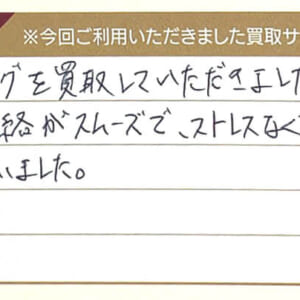 ※今回ご利用いただきました買取サ
グを買取していただきました
絡がスムーズで、ストレスなく
いました。